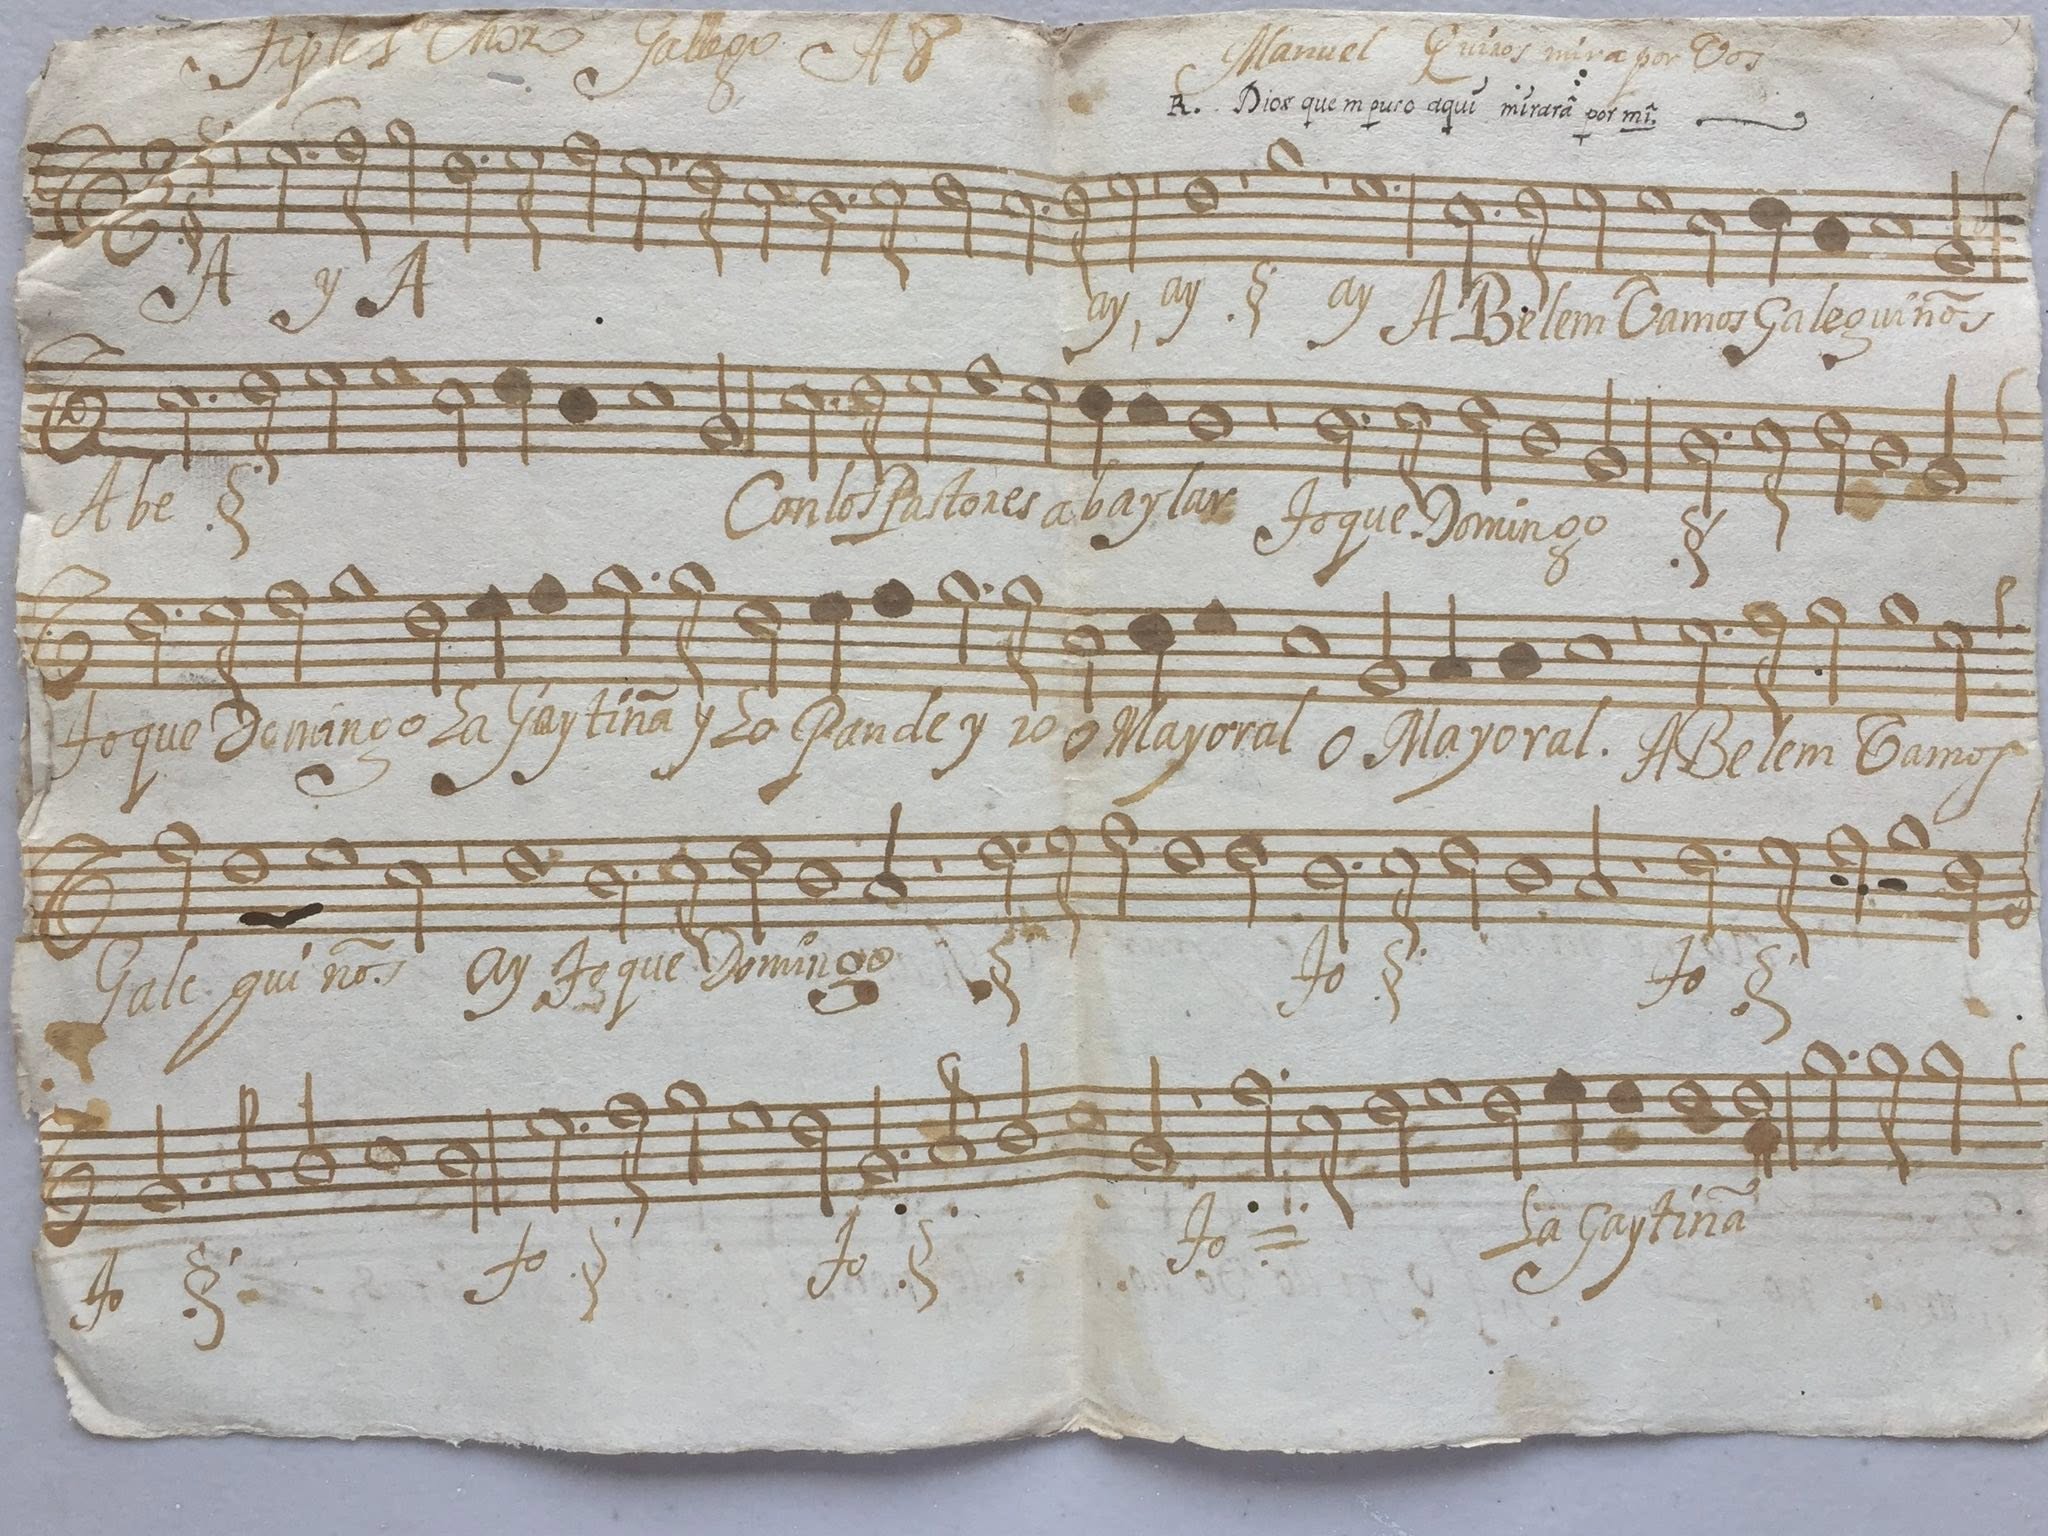 Tiple 1º Choro Gallego A 8
Manuel Quiros mira por Vos
R. Dios que m puso aqui mirarã por mĩ.
A y A ay, ay ay A Belem Vamos Galeguinõs
A be Con los Pastores a baylar Toque Domingo
Toque Domingo La Gaytinã y Lo Pandeyro o Mayoral o Mayoral. A Belem Vamos
Galeguinõs ay Toque Domingo To To
To To To To La Gaytinã